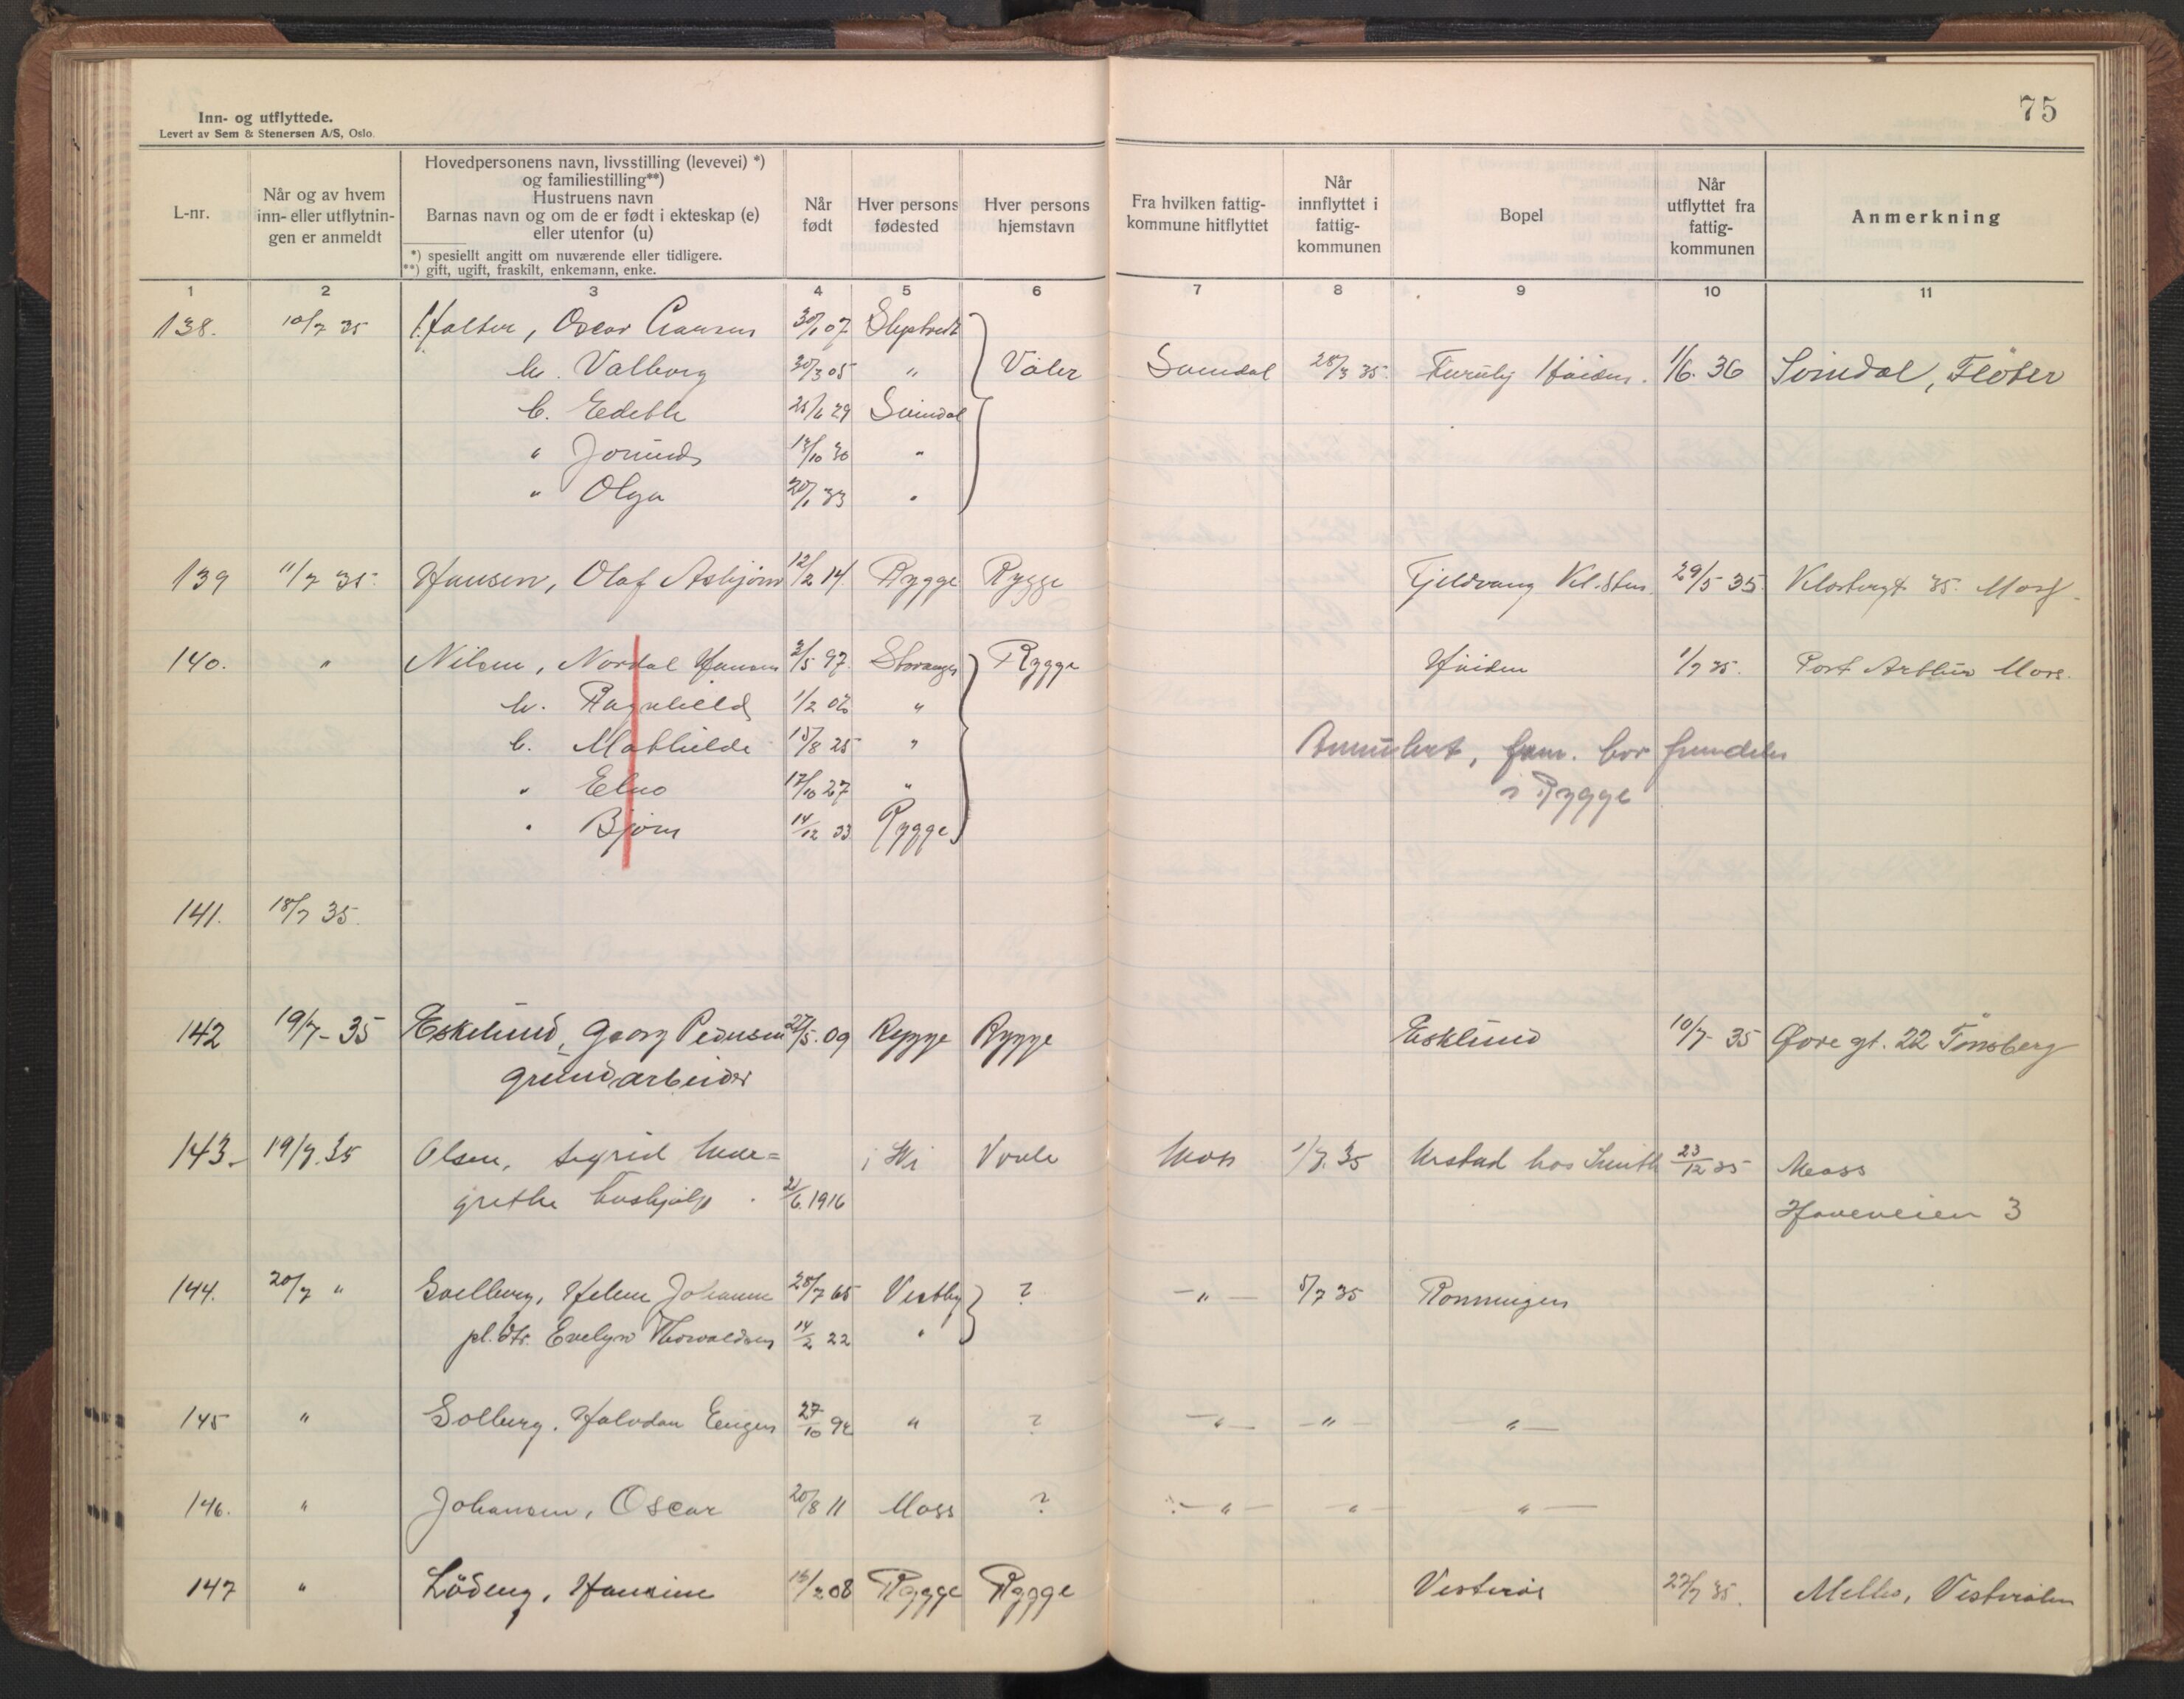 Inn- og utflyttede.
Levert av Sem & Stenersen A/S, Oslo.
75
L-nr.
Når og av hvem
inn- eller utflytnin-
gen er anmeldt
Hovedpersonens navn, livsstilling (levevei) *)
og familiestilling**)
Hustruens navn
Barnas navn og om de er født i ekteskap (e)
eller utenfor (u)
*) spesiellt angitt om nuværende eller tidligere.
**) gift, ugift, fraskilt, enkemann, enke.
Når
født
Hver persons
fødested
Hver persons
hjemstavn
Fra hvilken fattig-
kommune hitflyttet
Når
innflyttet i
fattig-
kommunen
Bopel
Når
utflyttet fra
fattig-
kommunen
Anmerkning
1 2 3 4 5 6 7 8 9 10 11
138. 10/7 35 Holter, Oscar 30/1 07
h. Valborg 30/3 05 " Våler Svindal 28/3 35 Furuly Høiden. 1/6. 36 Svindal, Fløter
b. Edith 25/6 29 Svindal
" Jorunds 13/10 30 "
" Olga 20/1 33 "
139 11/7 35. Hansen, Olaf Asbjørn 12/2 14. Rygge Rygge Fjeldvang 29/5 35. 35. Moss.
140. " Nilsen, Nordal Hansen 3/5 97. Stavanger Rygge Høiden 1/7 35. Port Arthur Moss.
h. Ragnhild 1/2 02 "
b. Mathilde 15/8 25 " Annulert, fam. bor fremdeles
" Elno 17/10 27 " i Rygge
" Bjørn 14/12 33 Rygge
141. 18/7 35.
142 19/7-35 Eskelund, Georg Pedersen 27/5. 09 Rygge Rygge Esklund 10/7-35 Øvre gt. 22 Tønsberg
grundarbeider
143- 19/7. 35 Olsen, Sigrid Mar= Vaale Moss 1/7. 35 hos Smith 23/12 35 Moss
grethe hushjælp. 21/6. 1916 Haveveien 3
144. 20/7 " Solberg, Helene Johanne 28/7 65 Vestby ? —"— 5/7 35 Rønningen
pl. dtr. Evelyn Thorvaldsen 14/2 22 "
145 " Solberg, Halvdan Eugen 27/10 92 " ? —"— —" "—
146. " Johansen, Oscar 20/8 11 Moss ? —"— "— "—
147 " Løðeng, Hansine 13/2 08 Rygge Rygge Vesterøs 22/7 35. Melbo, Vesterålen